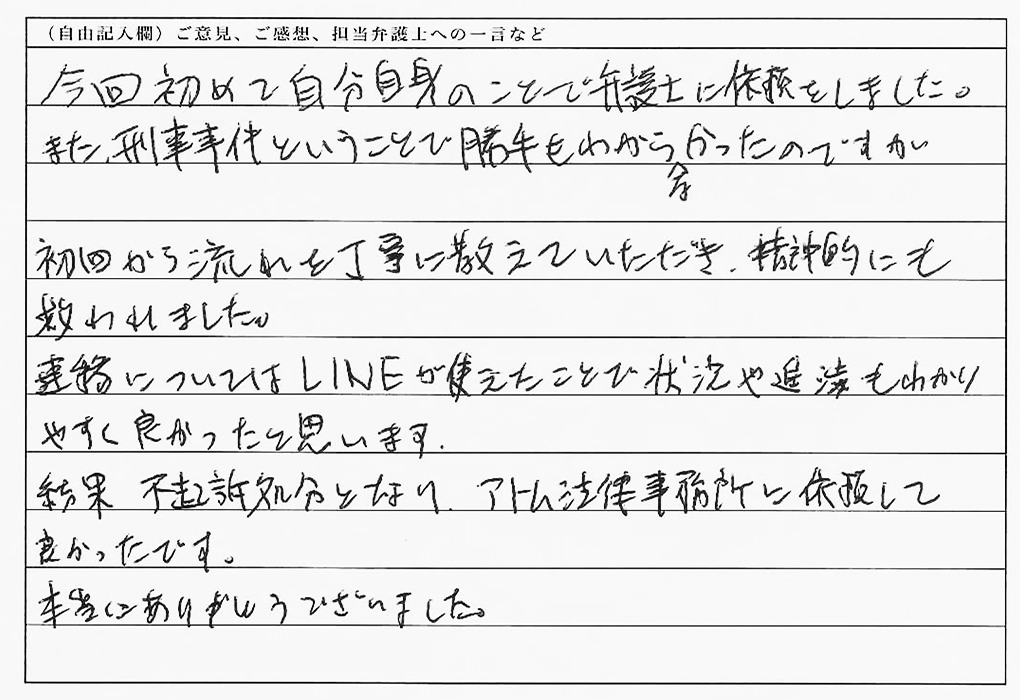 （自由記入欄）ご意見、ご感想、担当弁護士への一言など
今回初めて自分自身のことで弁護士に依頼をしました。
また、刑事事件ということで勝手もわからなかったのですが
初回から流れを丁寧に教えていただき、精神的にも
救われました。
連絡についてはLINEが使えたことで状況や進捗もわかり
やすく良かったと思います。
結果 不起訴処分となり、アトム法律事務所に依頼して
良かったです。
本当にありがとうございました。